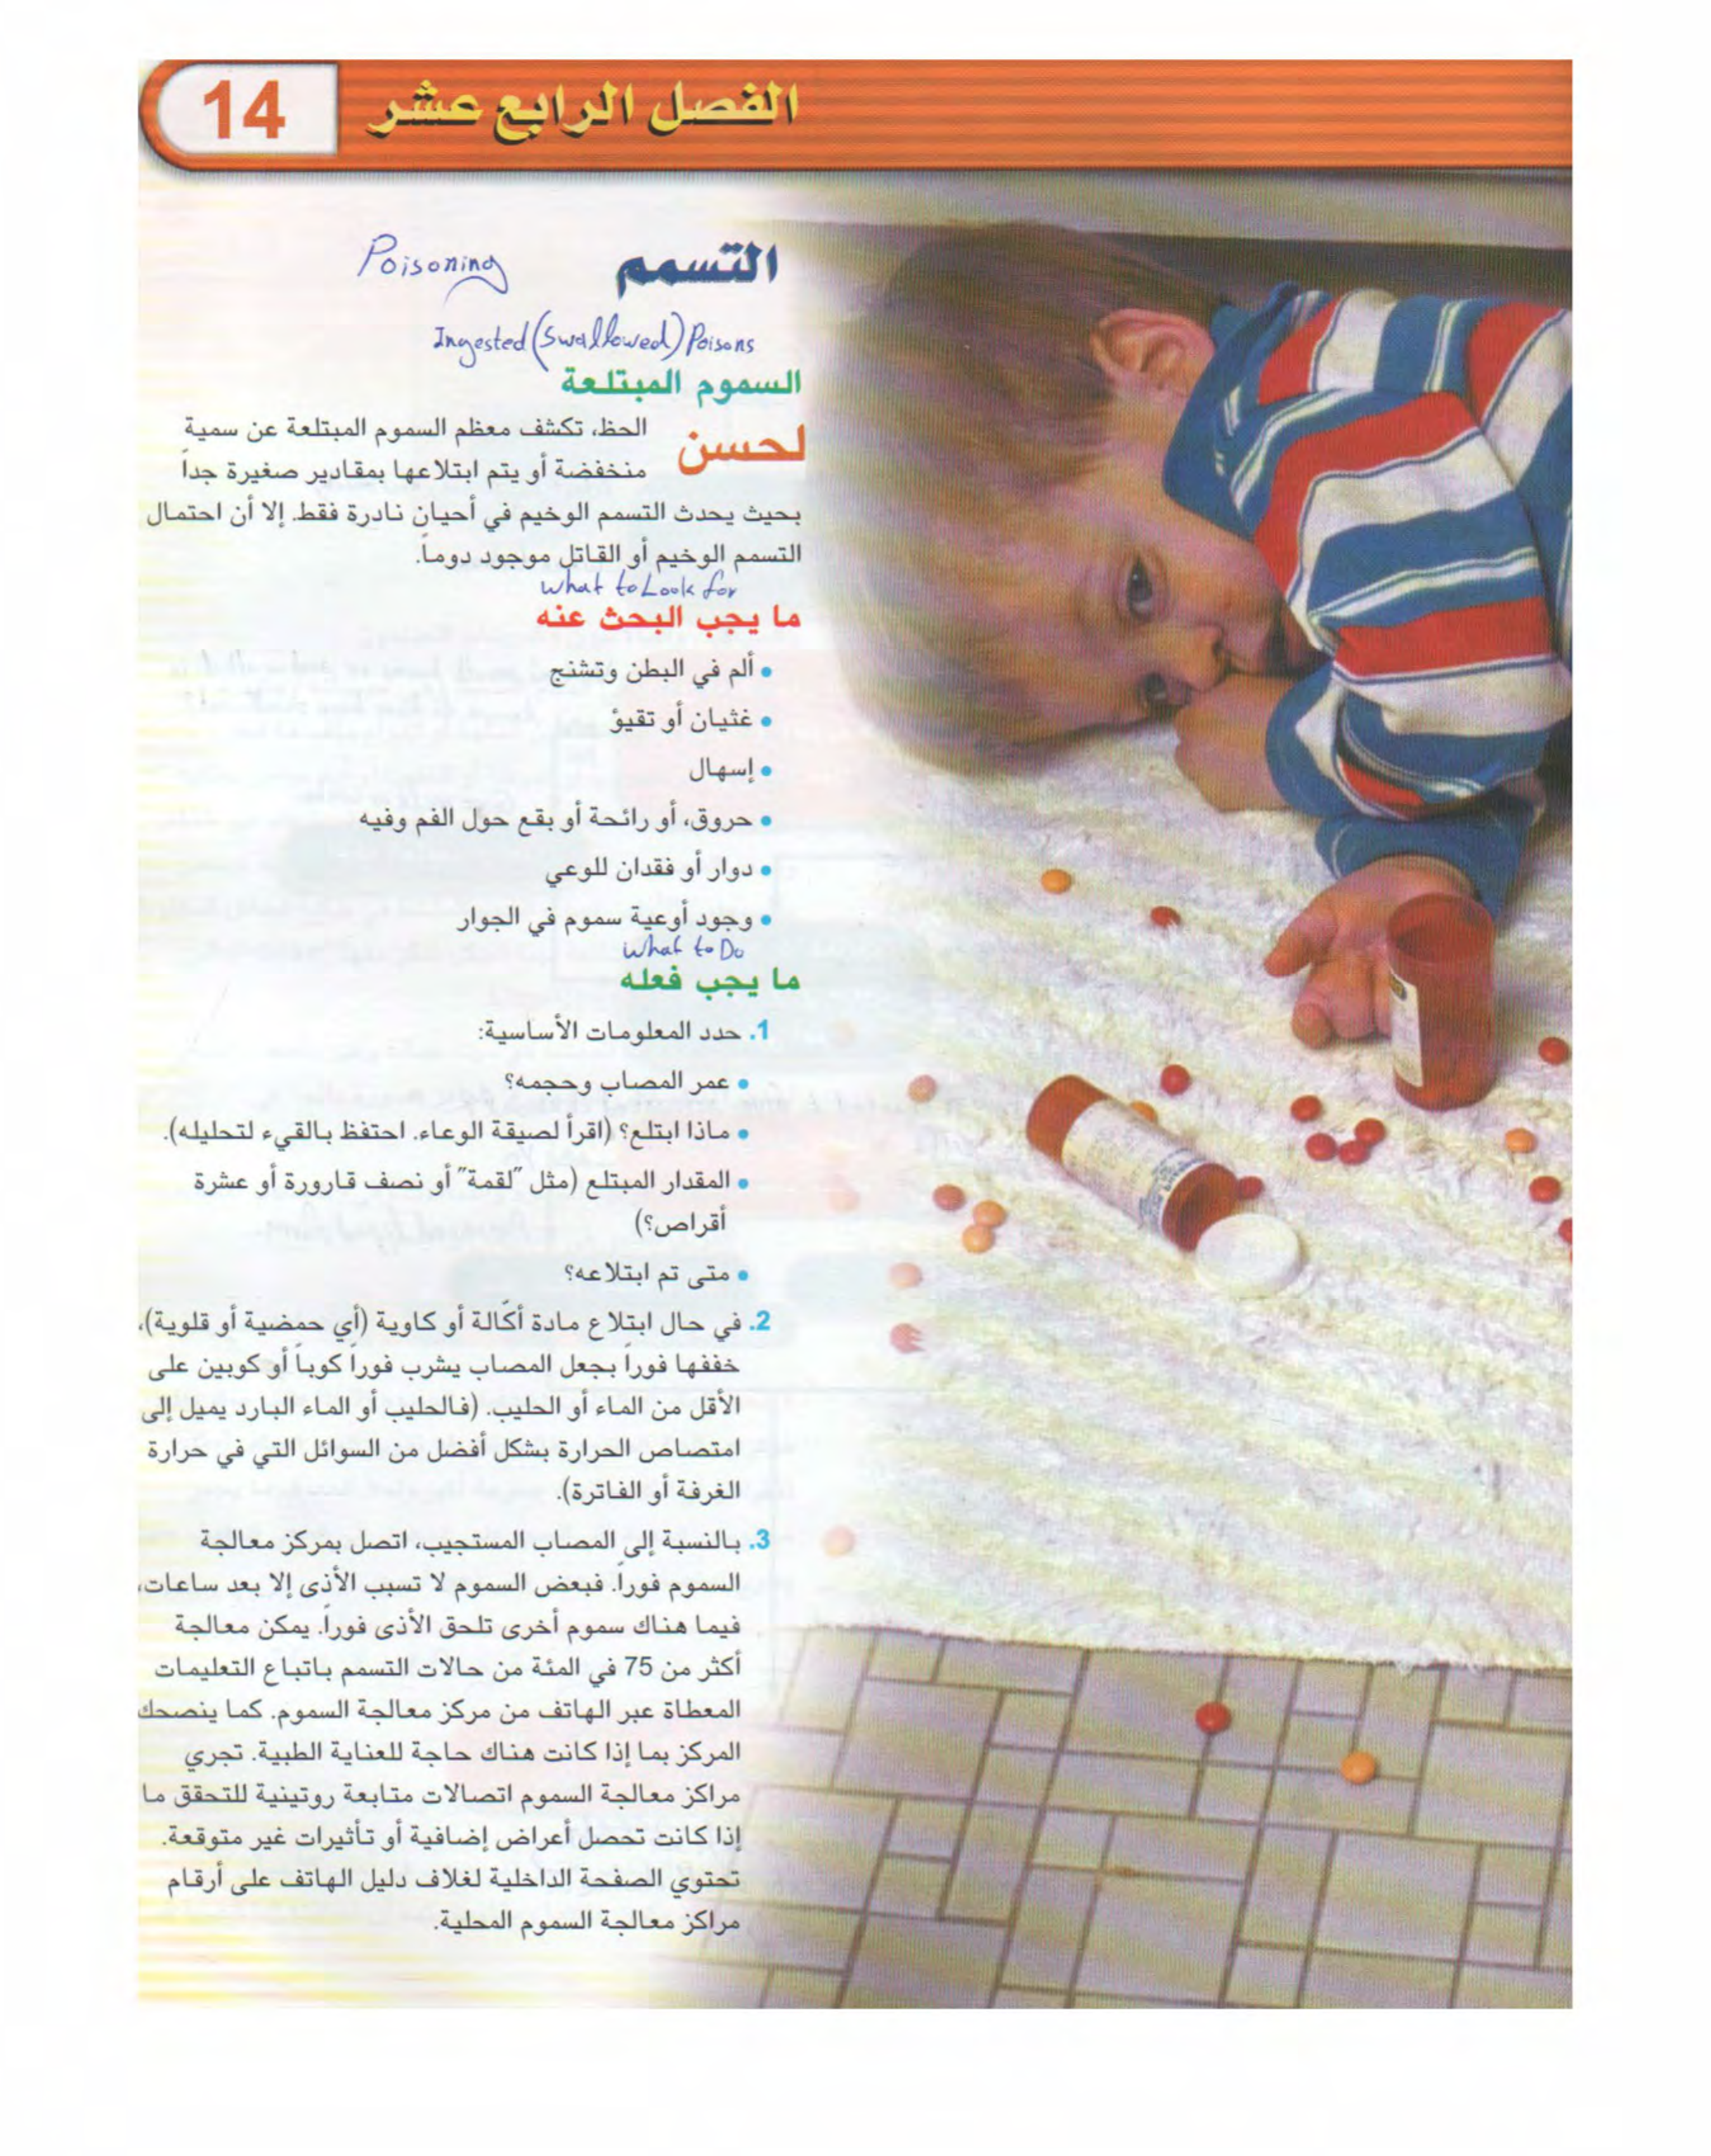 الفصل الرابع عشر
14
التسمم
Poisoning
Ingested (Swallowed) Poisons
السموم المبتلعة
لحسن الحظ، تكشف معظم السموم المبتلعة عن سمية
منخفضة أو يتم ابتلاعها بمقادير صغيرة جداً
بحيث يحدث التسمم الوخيم في أحيان نادرة فقط. إلا أن احتمال
التسمم الوخيم أو القاتل موجود دوماً.
What to Look for
ما يجب البحث عنه
• ألم في البطن وتشنج
• غثيان أو تقيؤ
• إسهال
• حروق، أو رائحة أو بقع حول الفم وفيه
• دوار أو فقدان للوعي
• وجود أوعية سموم في الجوار
What to Do
ما يجب فعله
1. حدد المعلومات الأساسية:
• عمر المصاب وحجمه؟
• ماذا ابتلع؟ (اقرأ لصيقة الوعاء. احتفظ بالقيء لتحليله).
• المقدار المبتلع (مثل "لقمة" أو نصف قارورة أو عشرة
أقراص؟)
• متى تم ابتلاعه؟
2. في حال ابتلاع مادة أكّالة أو كاوية (أي حمضية أو قلوية)،
خففها فوراً بجعل المصاب يشرب فوراً كوباً أو كوبين على
الأقل من الماء أو الحليب. (فالحليب أو الماء البارد يميل إلى
امتصاص الحرارة بشكل أفضل من السوائل التي في حرارة
الغرفة أو الفاترة).
3. بالنسبة إلى المصاب المستجيب، اتصل بمركز معالجة
السموم فوراً. فبعض السموم لا تسبب الأذى إلا بعد ساعات،
فيما هناك سموم أخرى تلحق الأذى فوراً. يمكن معالجة
أكثر من 75 في المئة من حالات التسمم باتباع التعليمات
المعطاة عبر الهاتف من مركز معالجة السموم. كما ينصحك
المركز بما إذا كانت هناك حاجة للعناية الطبية. تجري
مراكز معالجة السموم اتصالات متابعة روتينية للتحقق ما
إذا كانت تحصل أعراض إضافية أو تأثيرات غير متوقعة.
تحتوي الصفحة الداخلية لغلاف دليل الهاتف على أرقام
مراكز معالجة السموم المحلية.